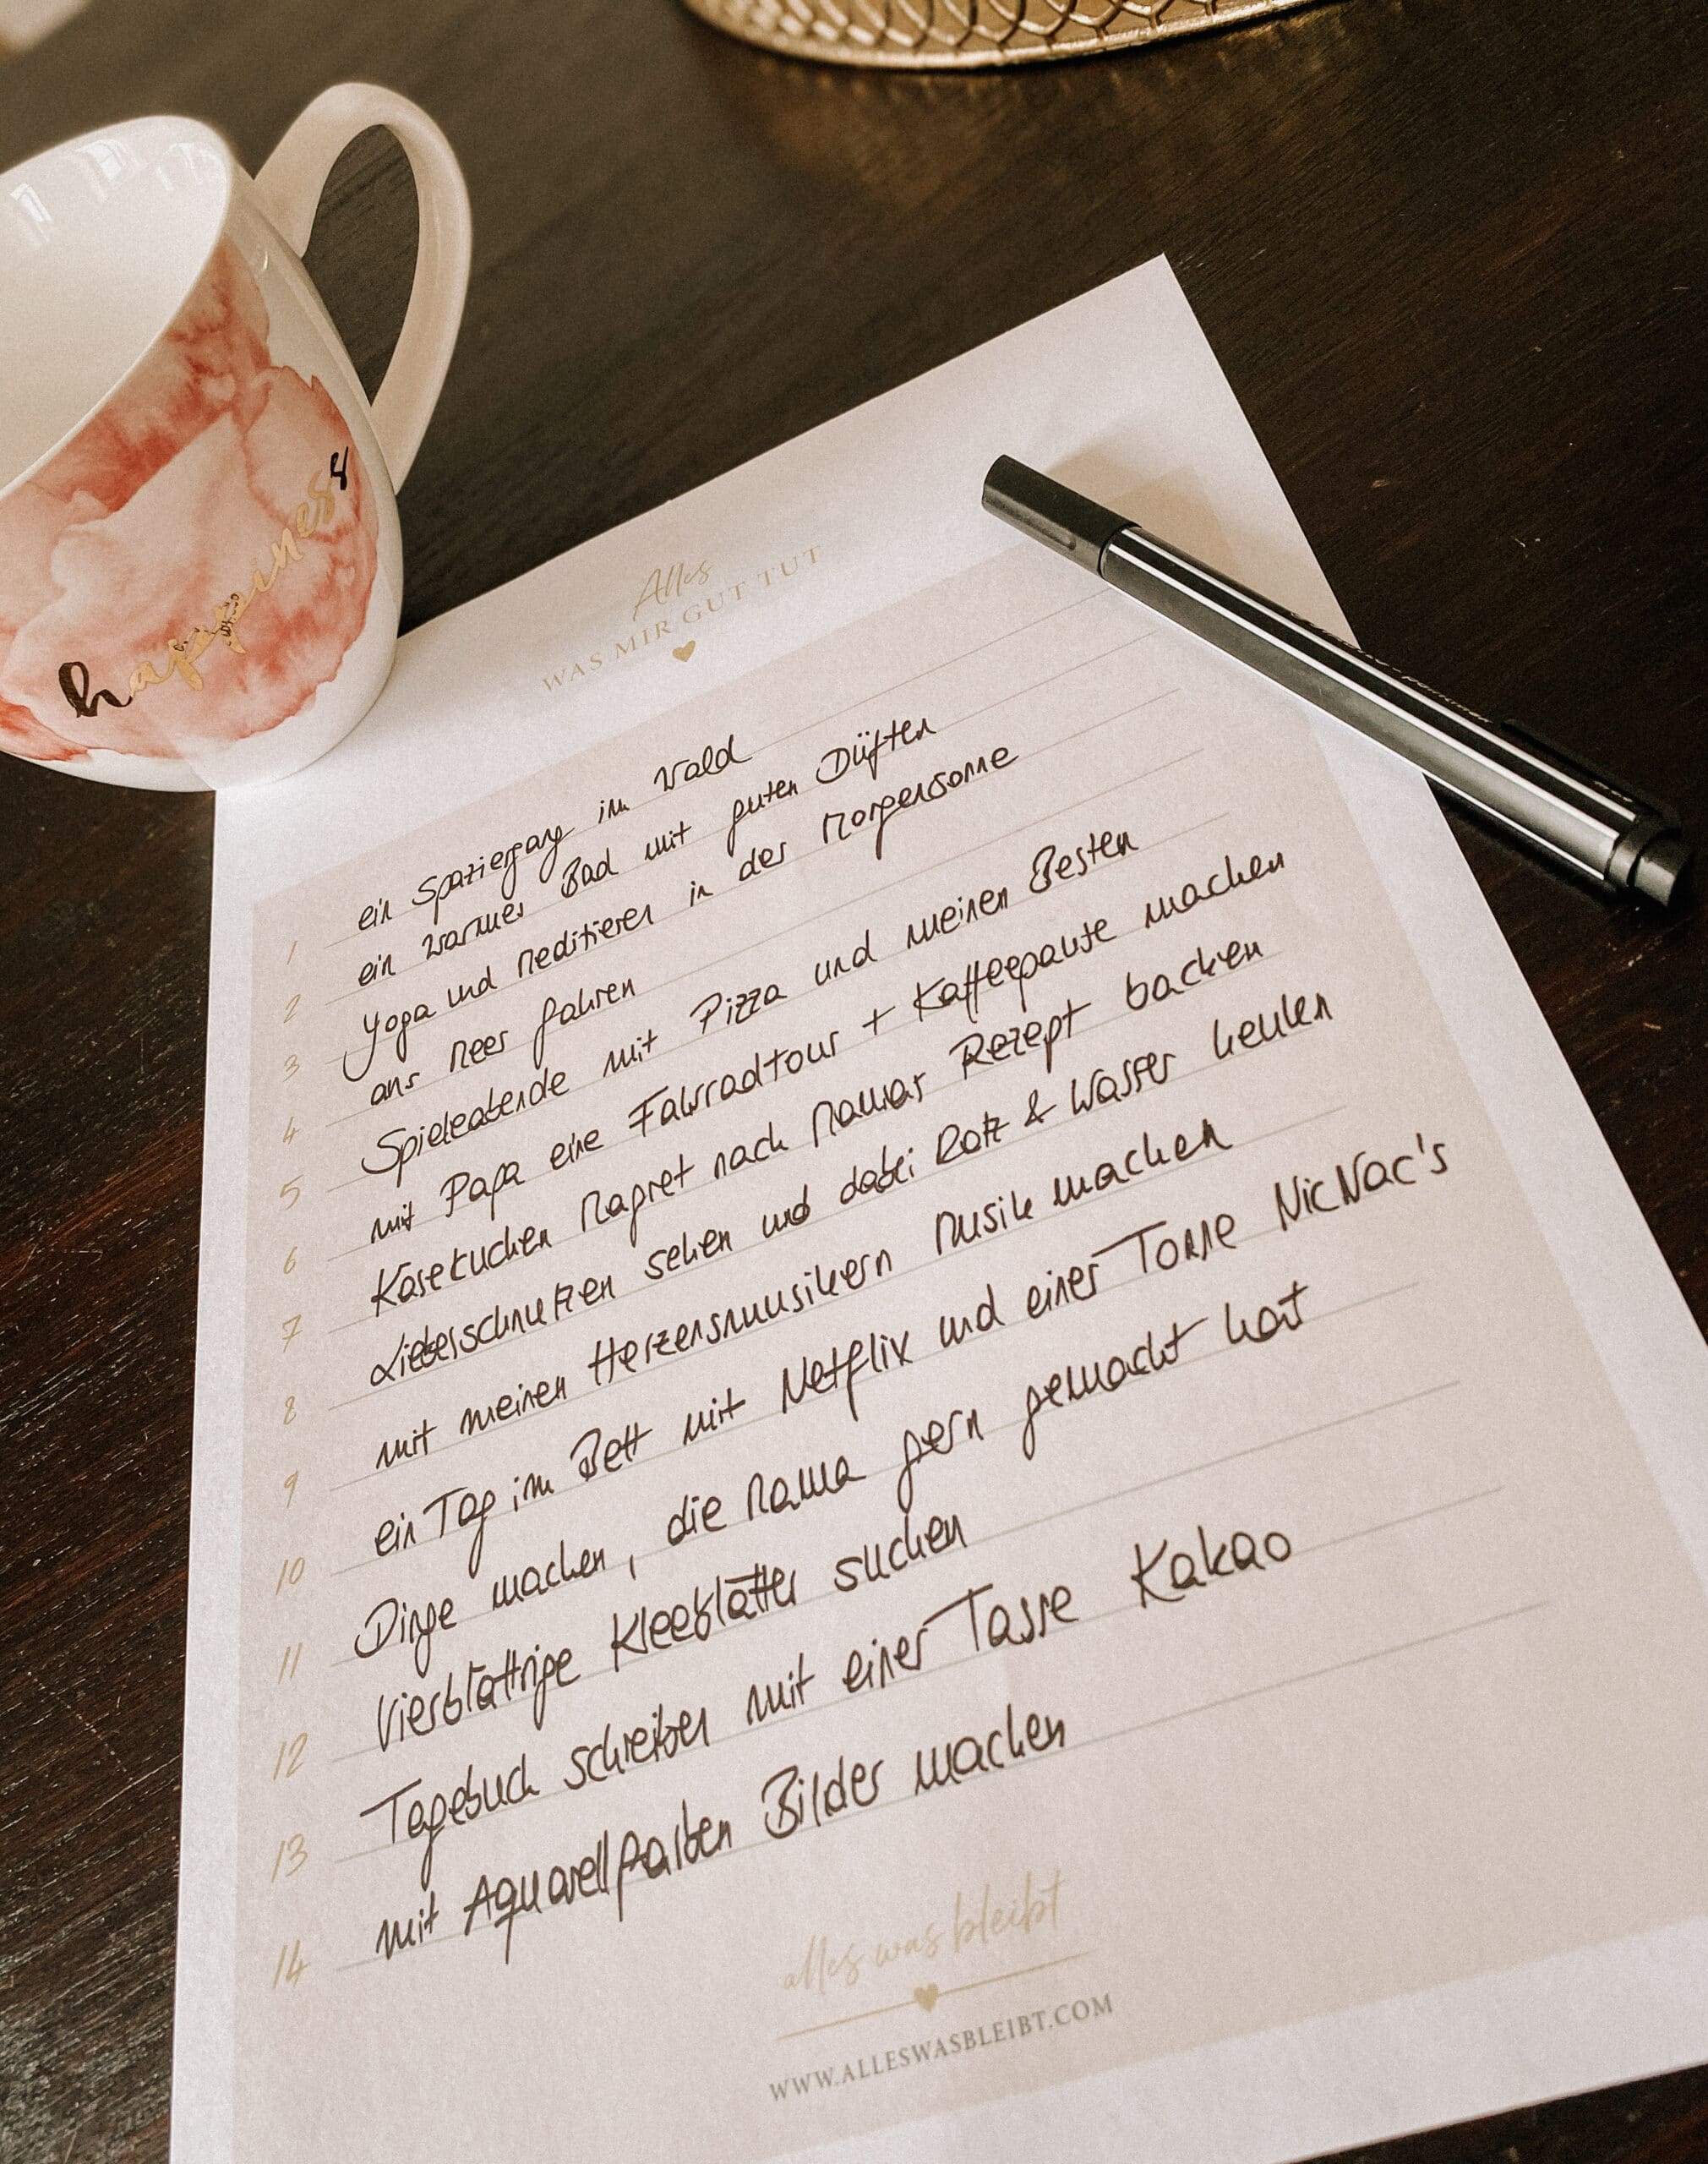 happiness
Alles
WAS MIR GUT TUT
1 ein Spaziergang im Wald
2 ein warmes Bad mit guten Düften
3 Yoga und Meditieren in der Morgensonne
4 ans Meer fahren
5 Spieleabende mit Pizza und meinen Besten
6 mit Papa eine Fahrradtour + Kaffeepause machen
7 Käsekuchen Magret nach Mamas Rezept backen
8 Liebesschnulzen sehen und dabei Rotz & Wasser heulen
9 mit meinen Herzensmusikern Musik machen
10 ein Tag im Bett mit Netflix und einer Tonne NicNac's
11 Dinge machen, die Mama gern gemacht hat
12 Vierblättrige Kleeblätter suchen
13 Tagebuch schreiben mit einer Tasse Kakao
14 mit Aquarellfarben Bilder machen
alles was bleibt
WWW.ALLESWASBLEIBT.COM